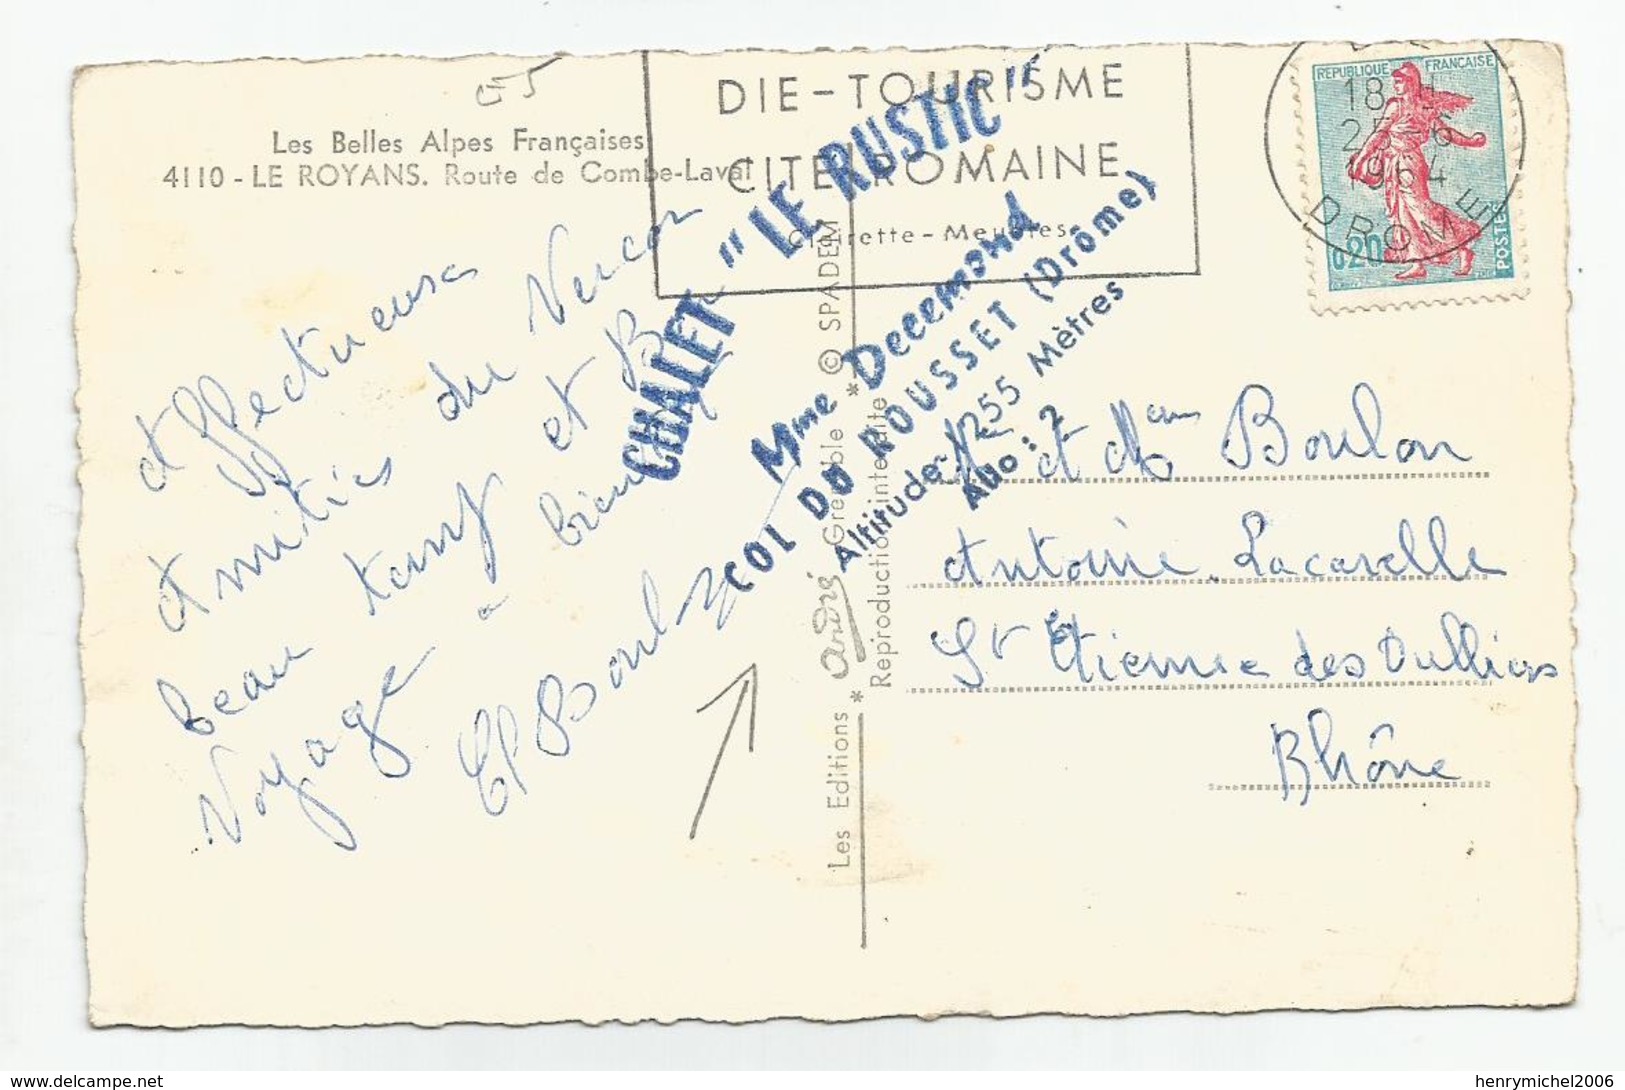 Les Belles Alpes Françaises
4110 - LE ROYANS. Route de Combe-Laval
DIE - TOURISME
CITE ROMAINE
Clairette - Meubles
REPUBLIQUE FRANÇAISE
0,20
POSTES
DIE
18 H
25-6
1964
DROME
CHALET "LE RUSTIC"
Mme Decemond
COL DU ROUSSET (Drôme)
Altitude: 1255 Mètres
Affectueuses
Amitiés du Vercors
beau temps et Bon
Voyage à bientôt
Les Editions * André Grenoble * © SPADEM
Reproduction interdite
M et Mme Boulon
Antoine Lacavelle
St Etienne des Oullières
Rhône
henrymichel2006